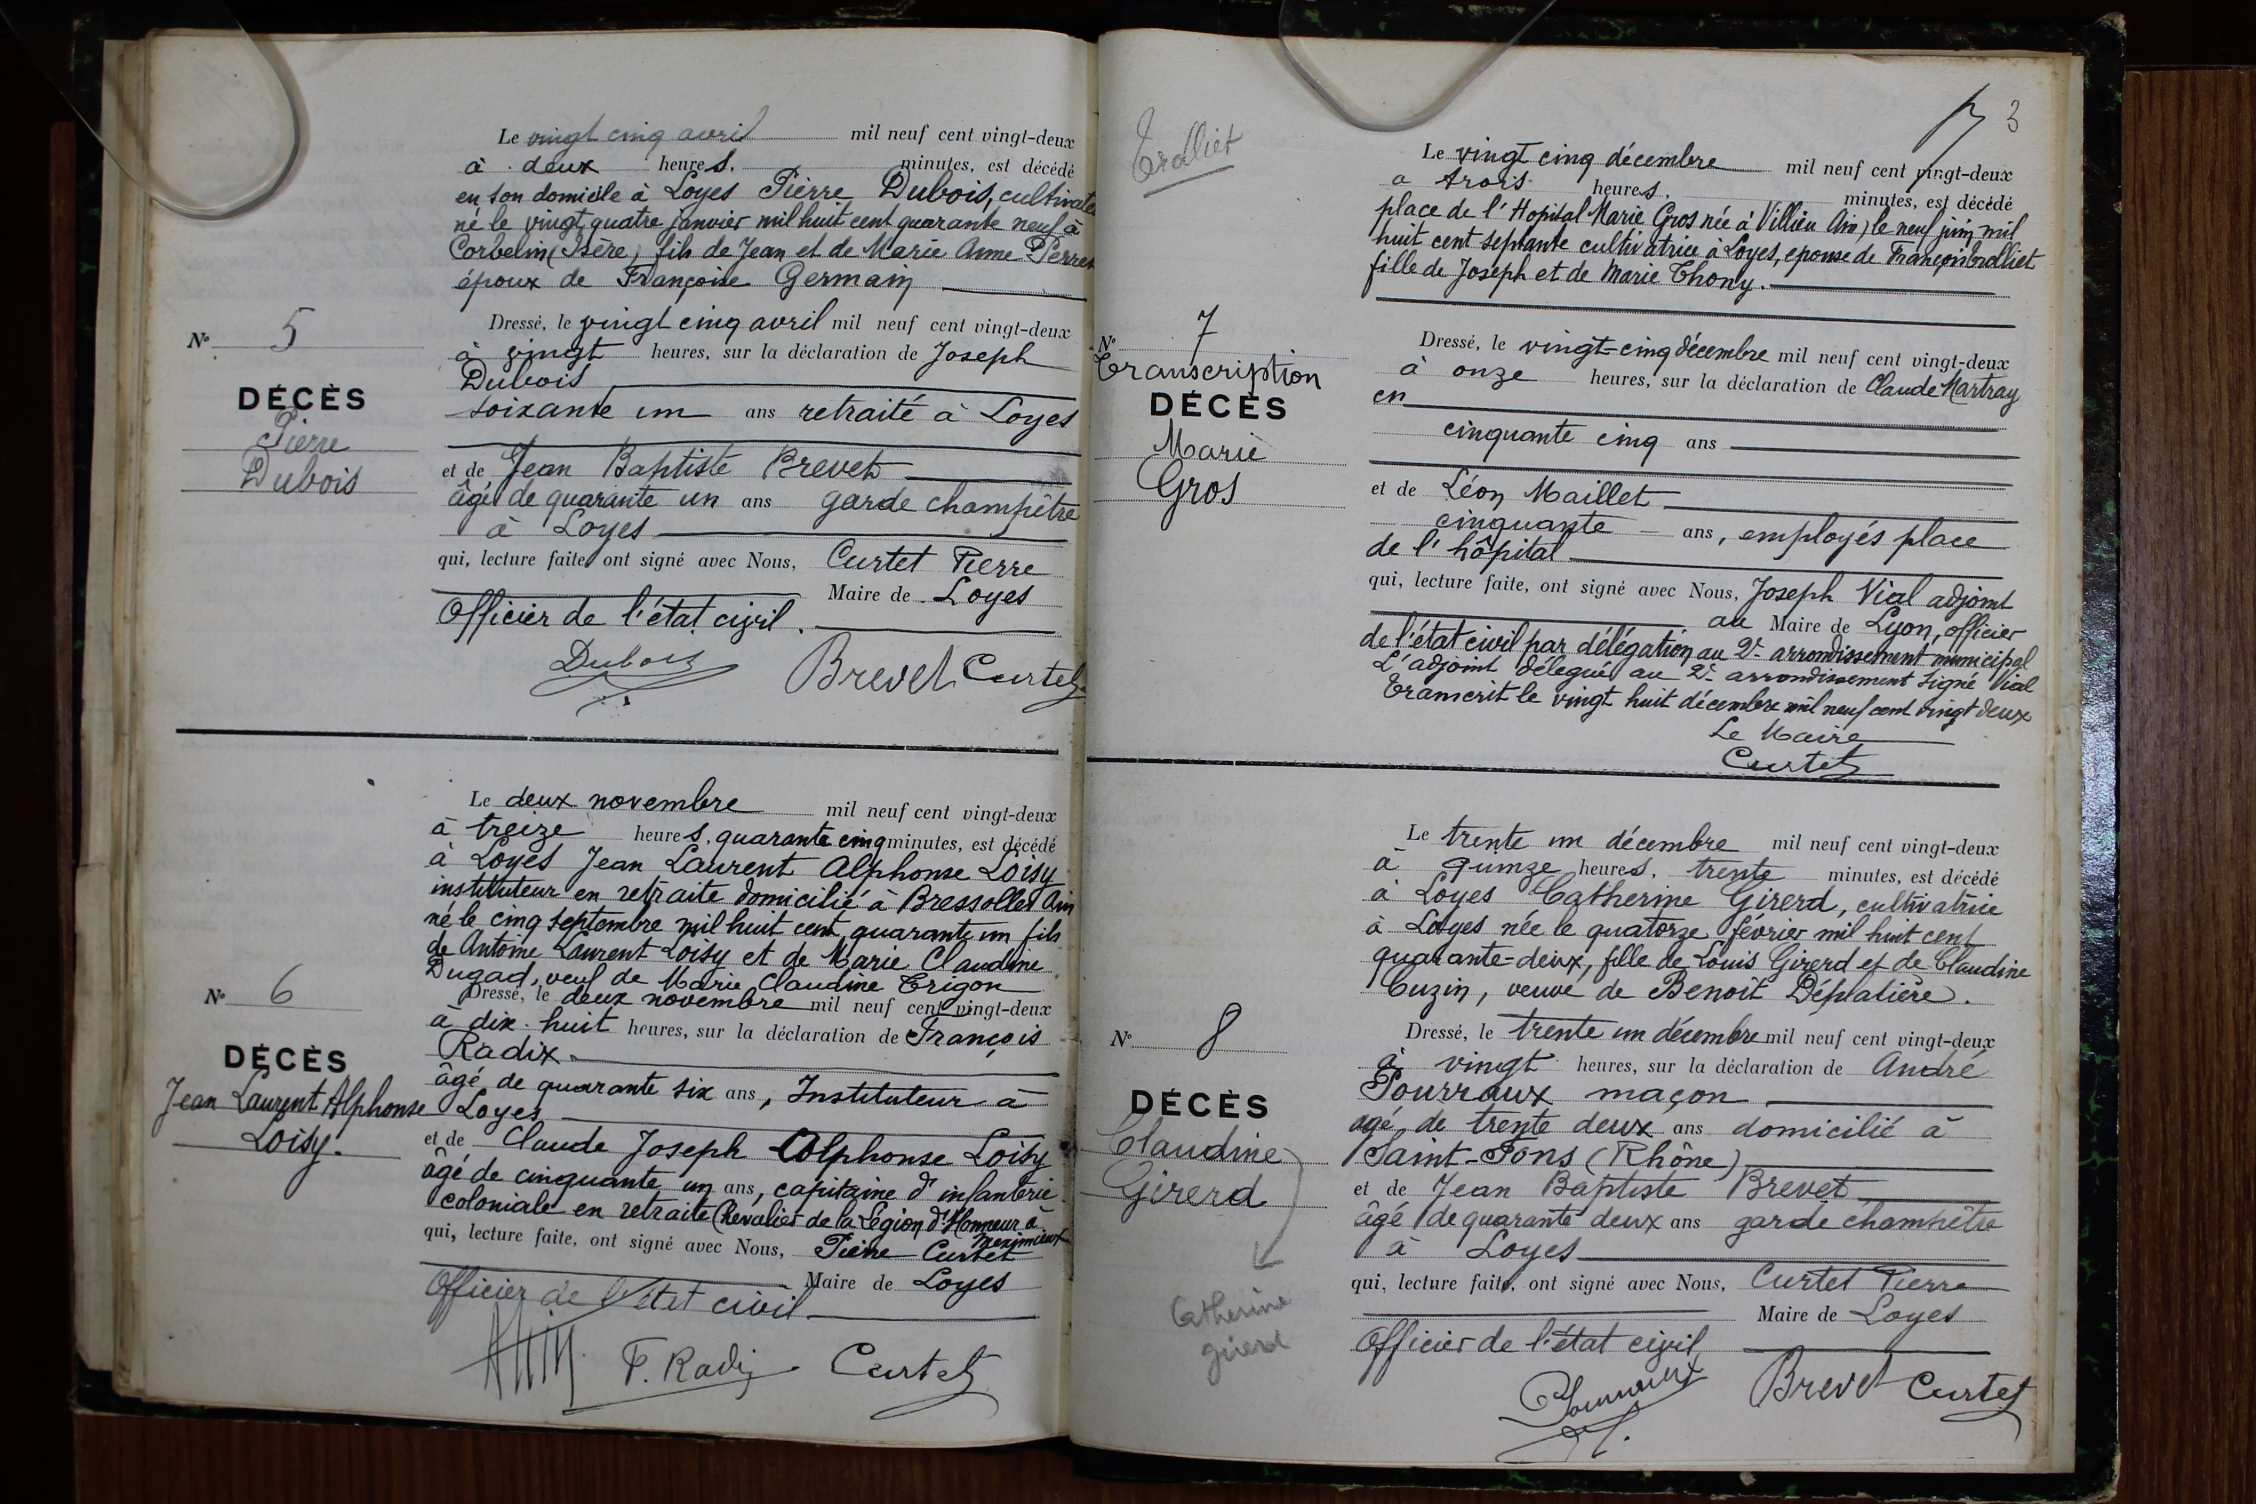 Le vingt cinq avril mil neuf cent vingt-deux
à deux heures. minutes, est décédé
en son domicile à Loyes Pierre Dubois, cultivate
né le vingt quatre janvier mil huit cent quarante neuf à
Corbelin (Isère) fils de Jean et de Marie Anne Perret
époux de Françoise Germain
N° 5
DÉCÈS
Pierre
Dubois
Dressé, le vingt cinq avril mil neuf cent vingt-deux
à vingt heures, sur la déclaration de Joseph
Dubois
soixante un ans retraité à Loyes
et de Jean Baptiste Brevet
âgé de quarante un ans garde champêtre
à Loyes
qui, lecture faite, ont signé avec Nous, Curtet Pierre
Maire de Loyes
Officier de l'état civil.
Dubois Brevet Curtet
Le deux novembre mil neuf cent vingt-deux
à treize heures. quarante cinq minutes, est décédé
à Loyes Jean Laurent Alphonse Loisy
instituteur en retraite domicilié à Bressolles Ain
né le cinq septembre mil huit cent quarante un fils
de Antoine Laurent Loisy et de Marie Claudine
Dugad, veuf de Marie Claudine Trigon
N° 6
DÉCÈS
Jean Laurent Alphonse
Loisy.
Dressé, le deux novembre mil neuf cent vingt-deux
à dix huit heures, sur la déclaration de François
Radix
âgé de quarante six ans, Instituteur à
Loyes
et de Claude Joseph Alphonse Loisy
âgé de cinquante un ans, capitaine d'infanterie
coloniale en retraite Chevalier de la Légion d'Honneur à
Meximieux
qui, lecture faite, ont signé avec Nous, Pierre Curtet
Maire de Loyes
Officier de l'état civil
F. Radix Curtet
3
Trolliet
Le vingt cinq décembre mil neuf cent vingt-deux
a trois heures. minutes, est décédé
place de l'Hopital Marie Gros née à Villieu Ain) le neuf juin mil
huit cent septante cultivatrice à Loyes, epouse de François trolliet
fille de Joseph et de Marie Thony.
N° 7
Transcription
DÉCÈS
Marie
Gros
Dressé, le vingt-cinq décembre mil neuf cent vingt-deux
à onze heures, sur la déclaration de Claude Martray
en
cinquante cinq ans
et de Léon Maillet
cinquante ans, employés place
de l'hôpital
qui, lecture faite, ont signé avec Nous, Joseph Vial adjoint
au Maire de Lyon, officier
de l'état civil par délégation au 2e arrondissement municipal
L'adjoint délégué au 2e arrondissement signé Vial
Transcrit le vingt huit décembre mil neuf cent vingt deux
Le Maire
Curtet
Le trente un décembre mil neuf cent vingt-deux
à quinze heures. trente minutes, est décédé
à Loyes Catherine Girerd, cultivatrice
à Loyes née le quatorze février mil huit cent
quarante-deux, fille de Louis Girerd et de Claudine
Cuzin, veuve de Benoît Déplatière.
N° 8
DÉCÈS
Claudine
Girerd
Catherine
girerd
Dressé, le trente un décembre mil neuf cent vingt-deux
à vingt heures, sur la déclaration de André
Pourraux maçon
agé de trente deux ans domicilié à
Saint-Fons (Rhône)
et de Jean Baptiste Brevet
âgé de quarante deux ans garde champêtre
à Loyes
qui, lecture faite, ont signé avec Nous, Curtet Pierre
Maire de Loyes
Officier de l'état civil
Brevet Curtet